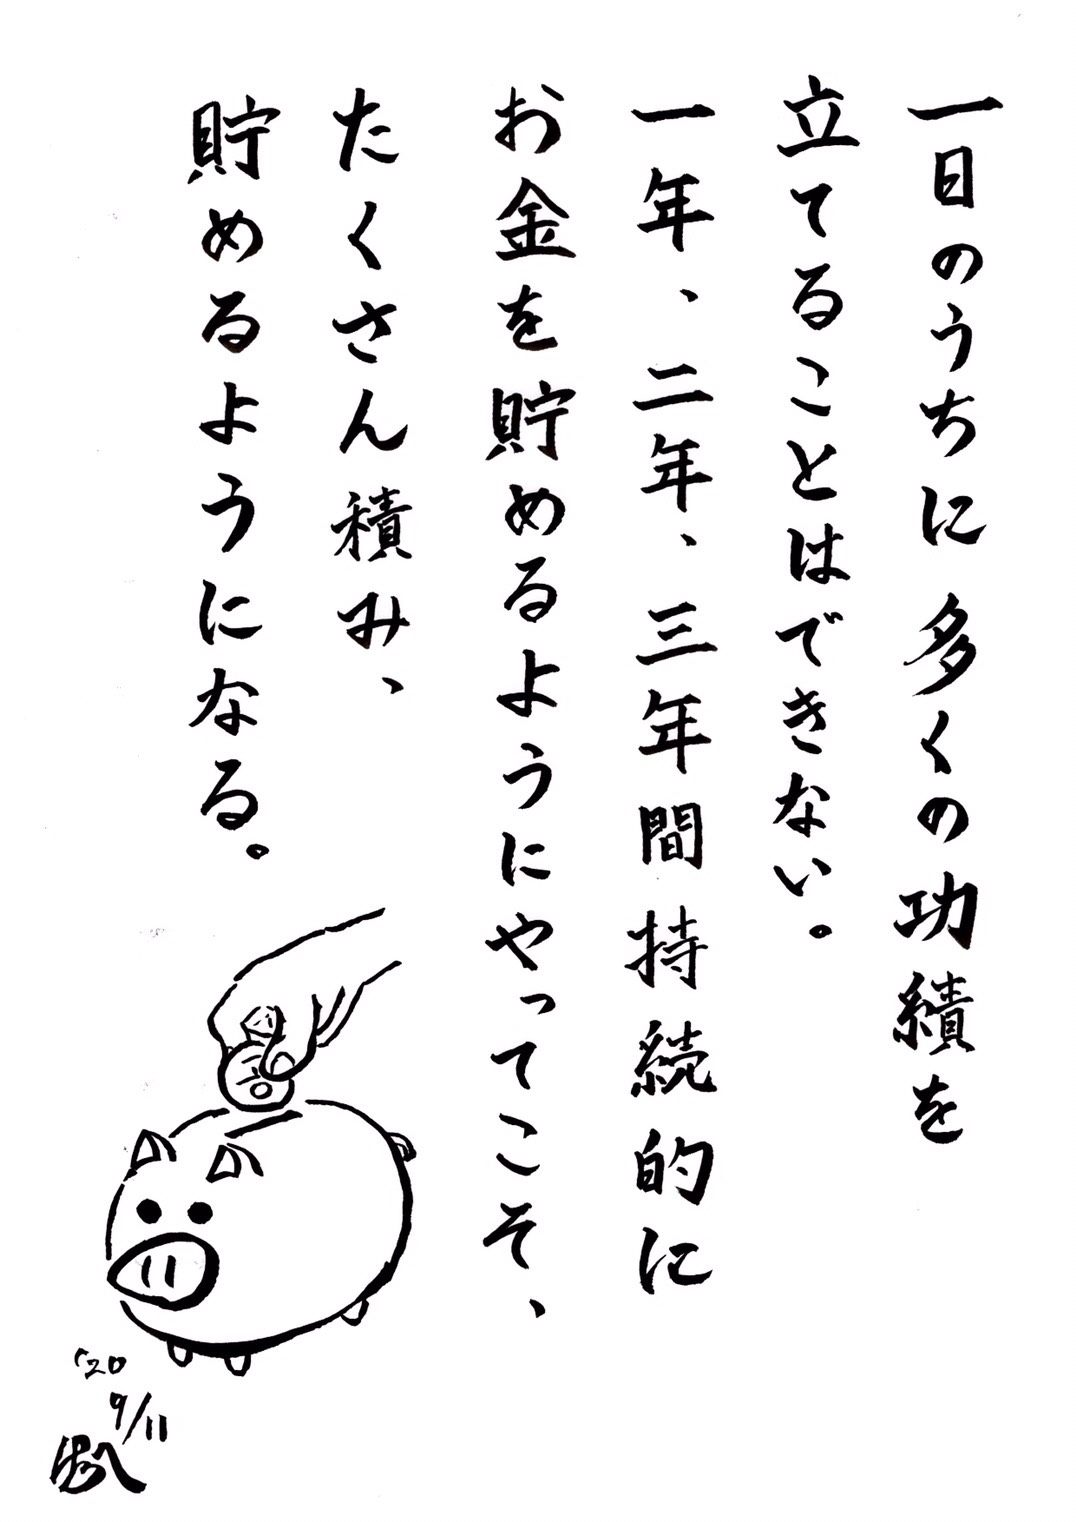 一日のうちに多くの功績を
立てることはできない。
一年、二年、三年間持続的に
お金を貯めるようにやってこそ、
たくさん積み、
貯めるようになる。
'20
9/11